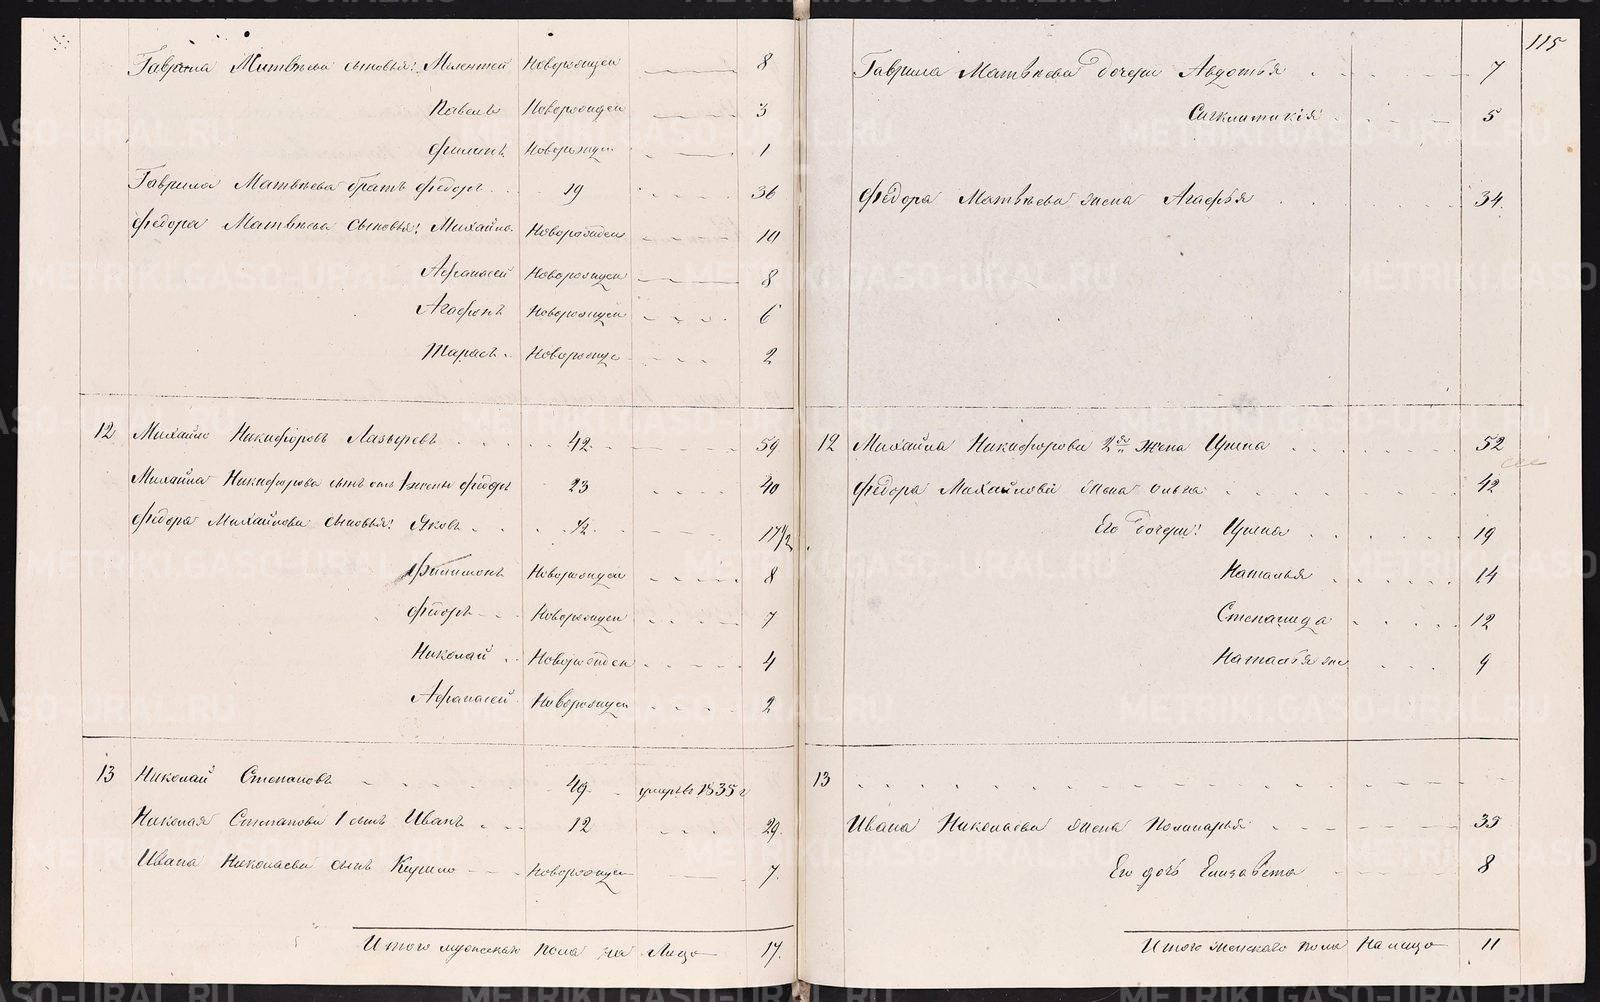 115
Гаврила Матвѣева сыновья: Мелентей Новорожден 8
Павелъ Новорожден 3
Филипъ Новорожден 1
Гаврила Матвѣева братъ Федоръ 19 36
Федора Матвѣева сыновья: Михайло Новорожден
Афанасей Новорожден 8
Агафонъ Новорожден 6
Тарасъ Новорожде 2
12 Михайло Никифоровъ Лазыревъ 42 59
Михайла Никифорова сынъ отъ 1 жены Федоръ 23 40
Федора Михайлова сыновья: Яковъ 1/2 17 1/2
Филимонъ Новорожден 8
Федоръ Новорожден 7
Николай Новорожден 4
Афанасей Новорожден 2
13 Николай Степановъ 49 умеръ въ 1835 г
Николая Степанова 1 сынъ Иванъ 12 29
Ивана Николаева сынъ Кирило Новорожден 7
Итого мужскаго пола на Лицо 17
Гаврила Матвѣева дочери Авдотья 7
Сигклитикія 5
Федора Матвѣева жена Агафья 34
12 Михайла Никифорова 2я жена Ирина 52
Федора Михайлова жена Ольга 42
Его дочери: Ирина 19
Наталья 14
Степанида 12
Наталья 9
13
Ивана Николаева жена Полинарья 35
Его дочь Елизавета 8
Итого женскаго пола На лицо 11
METRIKI.GASO-URAL.RU